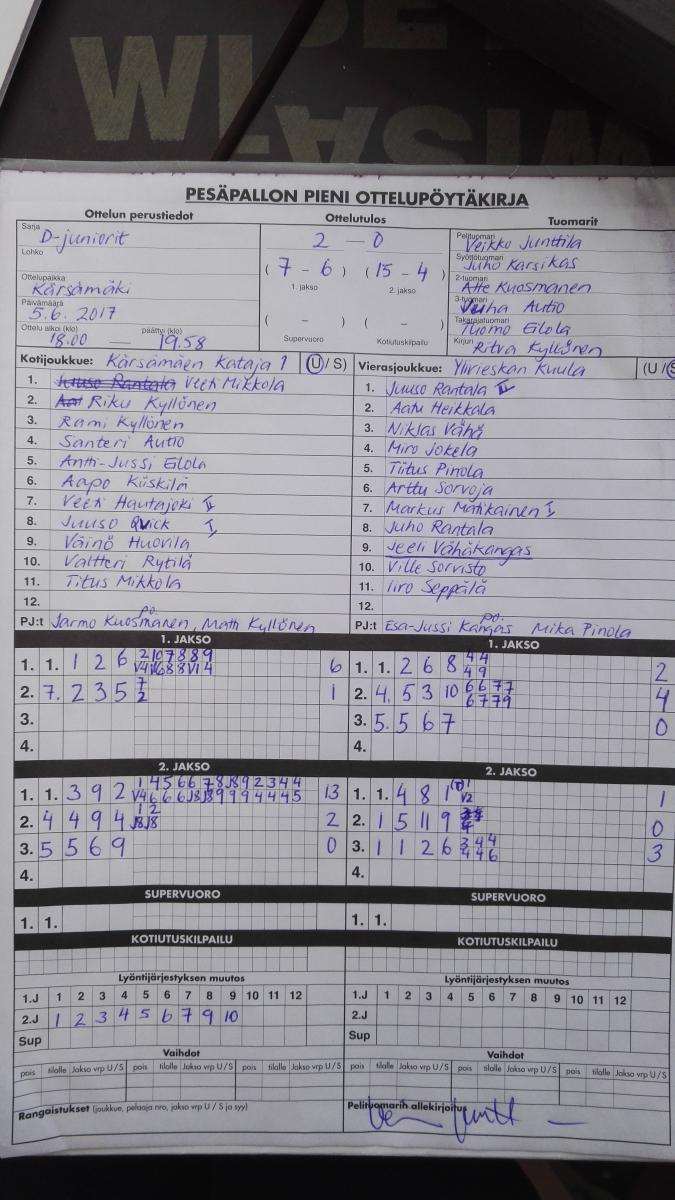 PESÄPALLON PIENI OTTELUPÖYTÄKIRJA
Ottelun perustiedot
Sarja D-juniorit
Lohko
Ottelupaikka Kärsämäki
Päivämäärä 5.6.2017
Ottelu alkoi (klo) päättyi (klo)
18.00 — 19.58
Ottelutulos
2 — 0
( 7 - 6 ) ( 15 - 4 )
1. jakso 2. jakso
( - ) ( - )
Supervuoro Kotiutuskilpailu
Tuomarit
Pelituomari Veikko Junttila
Syöttötuomari Juho Karsikas
2-tuomari Atte Kuosmanen
3-tuomari Juha Autio
Takarajatuomari Tuomo Elola
Kirjuri Ritva Kyllönen
Kotijoukkue: Kärsämäen Kataja 1 (U/S)
1. Juuso Rantala Veeti Mikkola
2. Riku Kyllönen
3. Rami Kyllönen
4. Santeri Autio
5. Antti-Jussi Elola
6. Aapo Kiiskilä
7. Veeti Hautajoki II
8. Juuso Quick I
9. Väinö Huovila
10. Valtteri Rytilä
11. Titus Mikkola
12.
PJ:t Jarmo Kuosmanen, Matti Kyllönen
po.
Vierasjoukkue: Ylivieskan Kuula (U/S
1. Juuso Rantala II
2. Aatu Heikkala
3. Niklas Vähä
4. Miro Jokela
5. Tiitus Pinola
6. Arttu Sorvoja
7. Markus Matikainen I
8. Juho Rantala
9. Jeeli Vähäkangas
10. Ville Sorvisto
11. Iiro Seppälä
12.
PJ:t Esa-Jussi Kangas Mika Pinola
po.
1. JAKSO
1. 1. 1 2 6 6
2. 7. 2 3 5 7 2 1
3.
4.
1. JAKSO
1. 1. 2 6 8 4 4 4 9 2
2. 4. 5 3 10 6 6 7 7 6 7 7 9 4
3. 5. 5 6 7 0
4.
2. JAKSO
1. 1. 3 9 2 13
2. 4 4 9 4 2
3. 5 5 6 9 0
4.
2. JAKSO
1. 1. 4 8 1 1
2. 1 5 11 9 0
3. 1 1 2 6 3 4 4 4 4 6 3
4.
SUPERVUORO
1. 1.
SUPERVUORO
1. 1.
KOTIUTUSKILPAILU
KOTIUTUSKILPAILU
Lyöntijärjestyksen muutos
1.J 1 2 3 4 5 6 7 8 9 10 11 12
2.J 1 2 3 4 5 6 7 9 10
Sup
Lyöntijärjestyksen muutos
1.J 1 2 3 4 5 6 7 8 9 10 11 12
2.J
Sup
Vaihdot
pois tilalle Jakso vrp U/S pois tilalle Jakso vrp U/S pois tilalle Jakso vrp U/S
Vaihdot
pois tilalle Jakso vrp U/S pois tilalle Jakso vrp U/S pois tilalle Jakso vrp U/S
Rangaistukset (joukkue, pelaaja nro, jakso vrp U/S ja syy)
Pelituomarin allekirjoitus